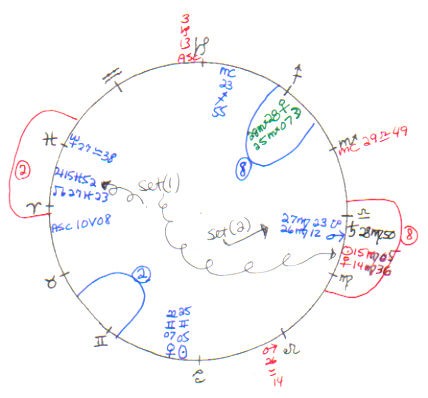 3
♑
13
ASC
♑
MC
23
♐
55
♐
♒
28♏28♀
25♏07☽
⑧
♏
MC 29♎49
♓
♆27♎38
②
♃15♓52
☊27♓23
set(1)
♈
ASC 10♈08
set(2)
27♍23
26♍12 ♂
♎
♄ 28♍50
⑧
☉15♍05
♀14♍36
♍
♉
②
♊
22 25
♊ ♊
07 05
♀ ☉
♋
♌
♂
26
♎
14